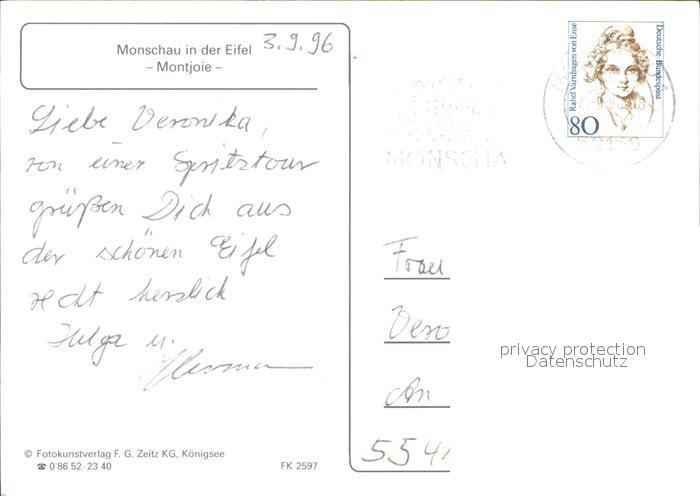 Monschau in der Eifel
– Montjoie –
3.9.96
Liebe Veronika,
von einer Spritztour
grüßen Dich aus
der schönen Eifel
recht herzlich
Helga u.
Hermann
© Fotokunstverlag F. G. Zeitz KG, Königsee
☎ 0 86 52-23 40
FK 2597
Rahel Varnhagen von Ense
Deutsche Bundespost
80
MONSCHA
Frau
Vero
An
554
privacy protection
Datenschutz